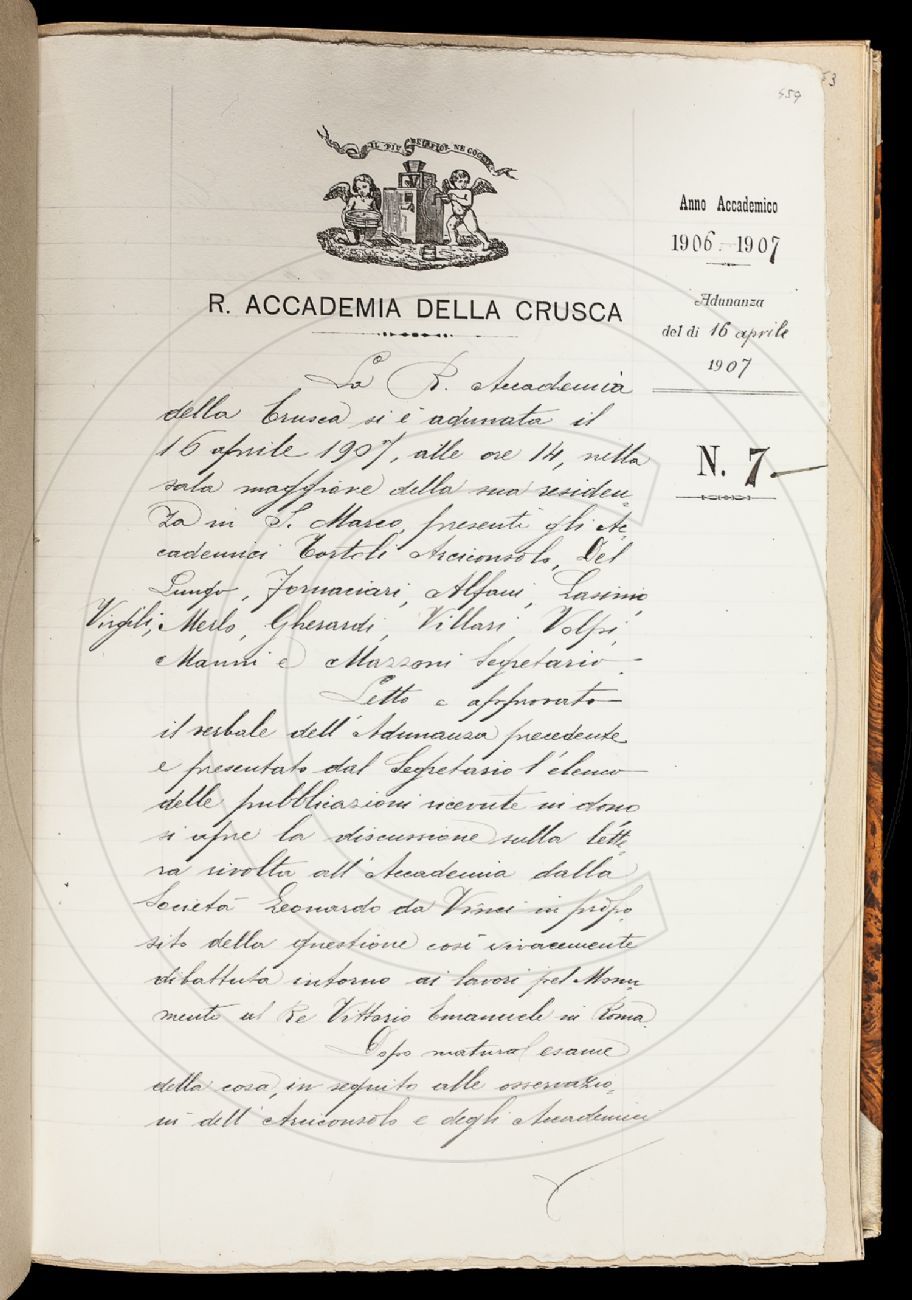 459
53
IL PIÙ BEL FIOR NE COGLIE
Anno Accademico
1906-1907
R. ACCADEMIA DELLA CRUSCA
Adunanza
del dì 16 aprile
1907
N. 7
La R. Accademia
della Crusca si è adunata il
16 aprile 1907, alle ore 14, nella
sala maggiore della sua residen-
za in S. Marco, presenti gli Ac-
cademici Tortoli Arciconsolo, Del
Lungo, Fornaciari, Alfani, Lasinio,
Virgili, Merlo, Gherardi, Villari, Volpi,
Manni e Mazzoni Segretario.
Letto e approvato
il verbale dell'Adunanza precedente
e presentato dal Segretario l'elenco
delle pubblicazioni ricevute in dono
si apre la discussione sulla lette-
ra rivolta all'Accademia dalla
Società Leonardo da Vinci in propo-
sito della questione così vivacemente
dibattuta intorno ai lavori pel Monu-
mento al Re Vittorio Emanuele in Roma.
Dopo maturo esame
della cosa, in seguito alle osservazio-
ni dell'Arciconsolo e degli Accademici